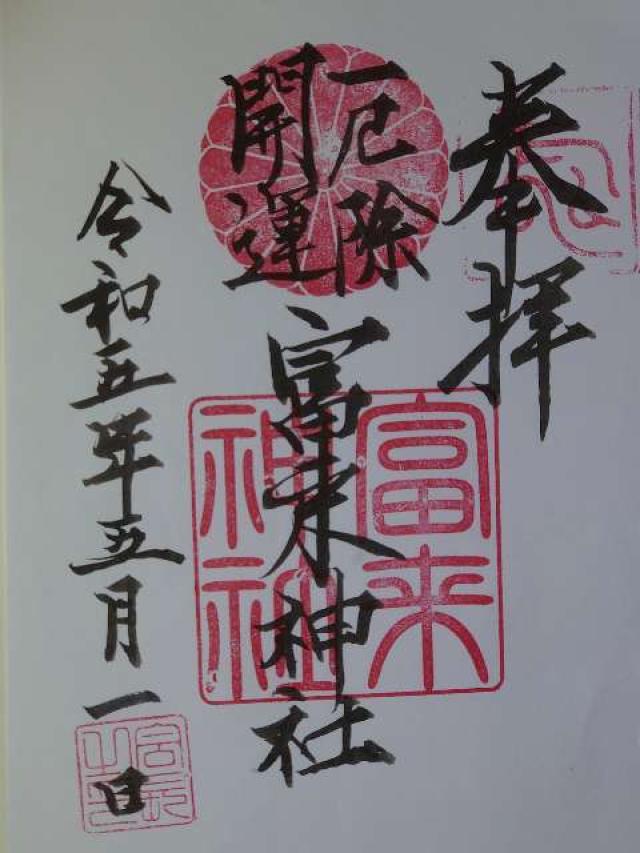 奉拝
厄除
開運
富来神社
富来
神社
令和五年五月一日